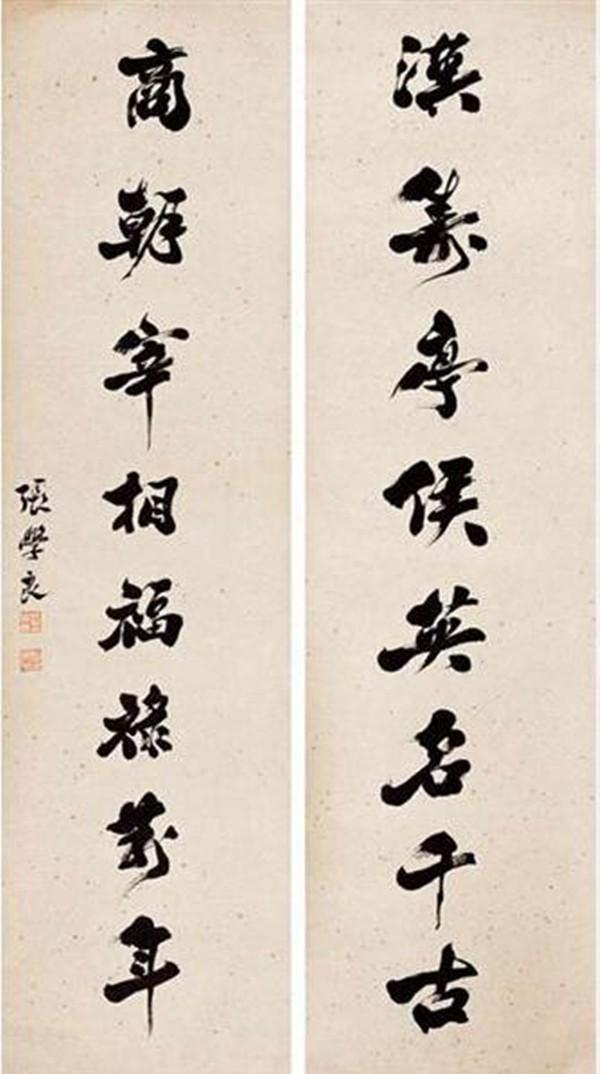 漢壽亭侯英名千古
商朝宰相福祿萬年
張學良